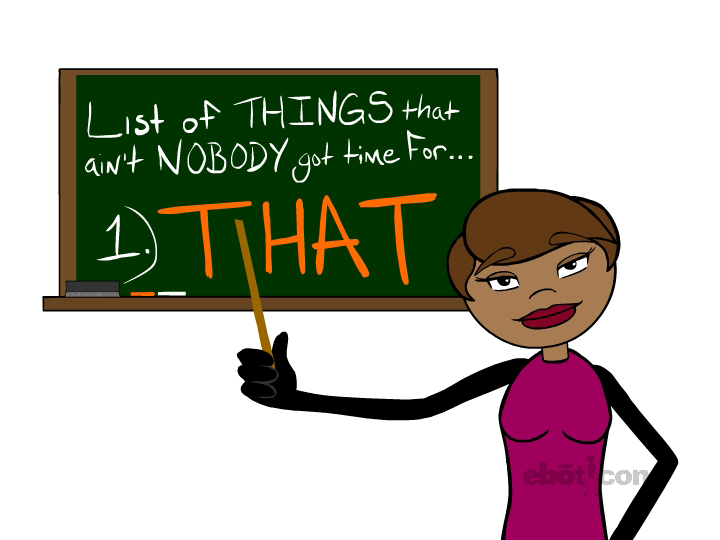 List of THINGS that
ain't NOBODY got time For...
1.) THAT